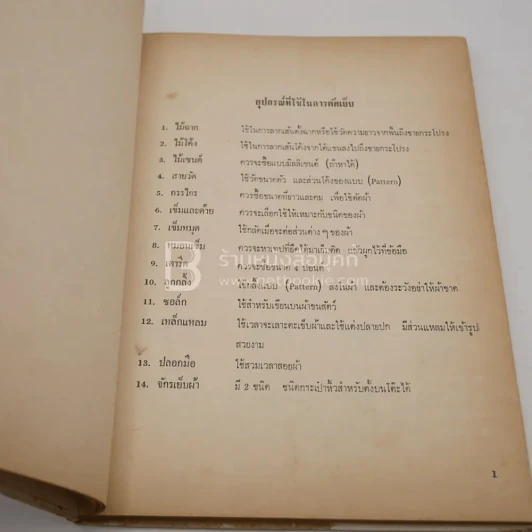 อุปกรณ์ที่ใช้ในการตัดเย็บ
1. ไม้ฉาก ใช้ในการลากเส้นตั้งฉากหรือใช้วัดความยาวจากพื้นถึงชายกระโปรง
2. ไม้โค้ง ใช้ในการลากเส้นโค้งจากใต้แขนลงไปถึงชายกระโปรง
3. ไม้เซนต์ ควรจะซื้อแบบมิลลิเซนต์ (ถ้าหาได้)
4. สายวัด ใช้วัดขนาดตัว และส่วนโค้งของแบบ (Pattern)
5. กรรไกร ควรซื้อขนาดที่ยาวและคม เพื่อใช้ตัดผ้า
6. เข็มและด้าย ควรจะเลือกใช้ให้เหมาะกับชนิดของผ้า
7. เข็มหมุด ใช้กลัดเมื่อจะต่อส่วนต่าง ๆ ของผ้า
8. หมอนเข็ม ควรจะหาเทปที่ยืดได้มาเย็บติด แล้วผูกไว้ที่ข้อมือ
9. เตารีด ควรจะซื้อขนาด 4 ปอนด์
10. ลูกกลิ้ง ใช้กลิ้งแบบ (Pattern) ลงในผ้า และต้องระวังอย่าให้ผ้าขาด
11. ชอล์ก ใช้สำหรับเขียนบนผ้าขนสัตว์
12. เหล็กแหลม ใช้เวลาจะเลาะตะเข็บผ้าและใช้แต่งปลายปก มีส่วนแหลมให้เข้ารูป
สวยงาม
13. ปลอกมือ ใช้สวมเวลาสอยผ้า
14. จักรเย็บผ้า มี 2 ชนิด ชนิดกระเป๋าหิ้วสำหรับตั้งบนโต๊ะได้
1
ร้านหนังสือบุคกี้